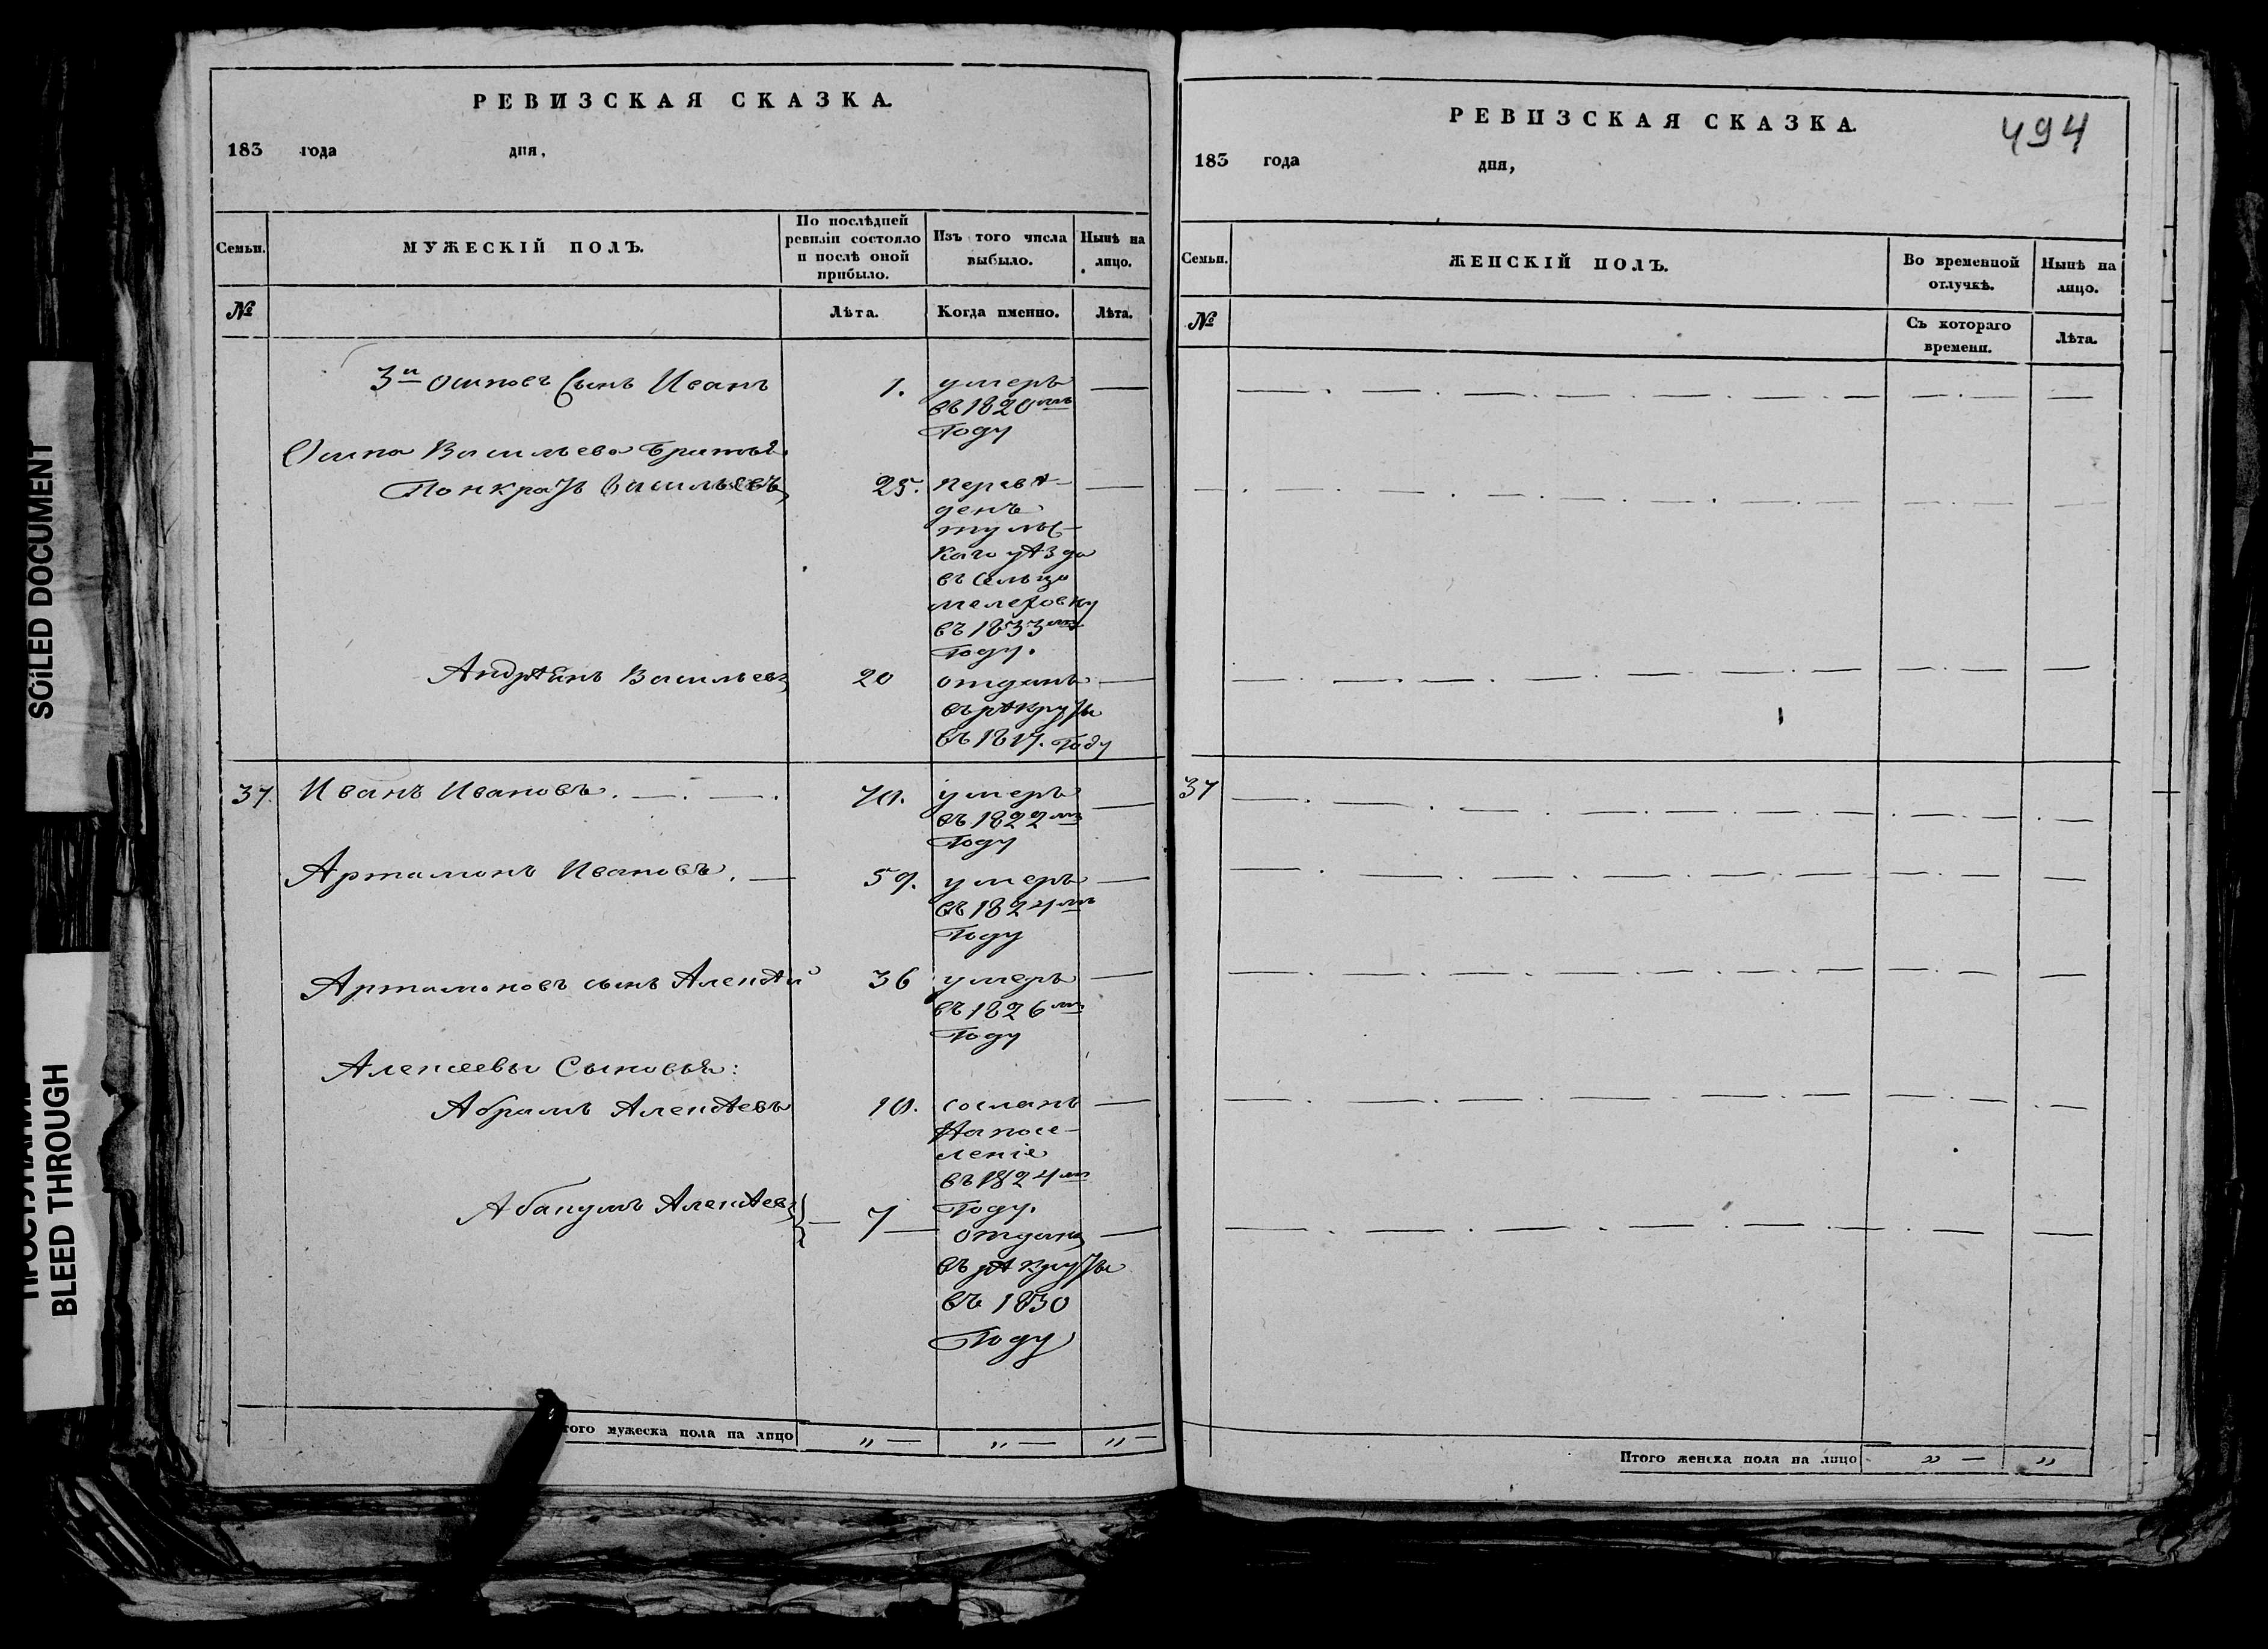 SOILED DOCUMENT
BLEED THROUGH
РЕВИЗСКАЯ СКАЗКА.
183 года дня,
Семьи.
МУЖЕСКІЙ ПОЛЪ.
По послѣдней
ревизіи состояло
и послѣ оной
прибыло.
Изъ того числа
выбыло.
Нынѣ на
лицо.
№
Лѣта.
Когда именно.
Лѣта.
3й Осиповъ Сынъ Иванъ 1. умеръ —
въ 1820мъ
Году
Осипа Васильева Братья
Понкратъ Васильевъ 25. перевѣ- —
денъ
тульс-
каго уѣзда
въ сельцо
въ 1833мъ
Году.
Андрѣянъ Васильевъ 20 отданъ —
въ рѣкруты
въ 1817. Году
37. Иванъ Ивановъ. —. —. 70. умеръ —
въ 1822мъ
Году
Артамонъ Ивановъ. — 59. умеръ —
въ 1824мъ
Году
Артамоновъ сынъ Алексѣй 36 умеръ —
въ 1826мъ
Году
Алексеевы Сыновья:
Абрамъ Алексѣевъ 10. сосланъ —
На посе-
леніе
въ 1824мъ
Году.
Абакумъ Алексѣевъ — 7 — отданъ —
въ рѣкруты
въ 1830
Году
того мужеска пола на лицо „ — „ — „ —
РЕВИЗСКАЯ СКАЗКА.
494
183 года дня,
Семьи.
ЖЕНСКІЙ ПОЛЪ.
Во временной
отлучкѣ.
Нынѣ на
лицо.
№
Съ котораго
времени.
Лѣта.
37
Итого женска пола на лицо „ — „